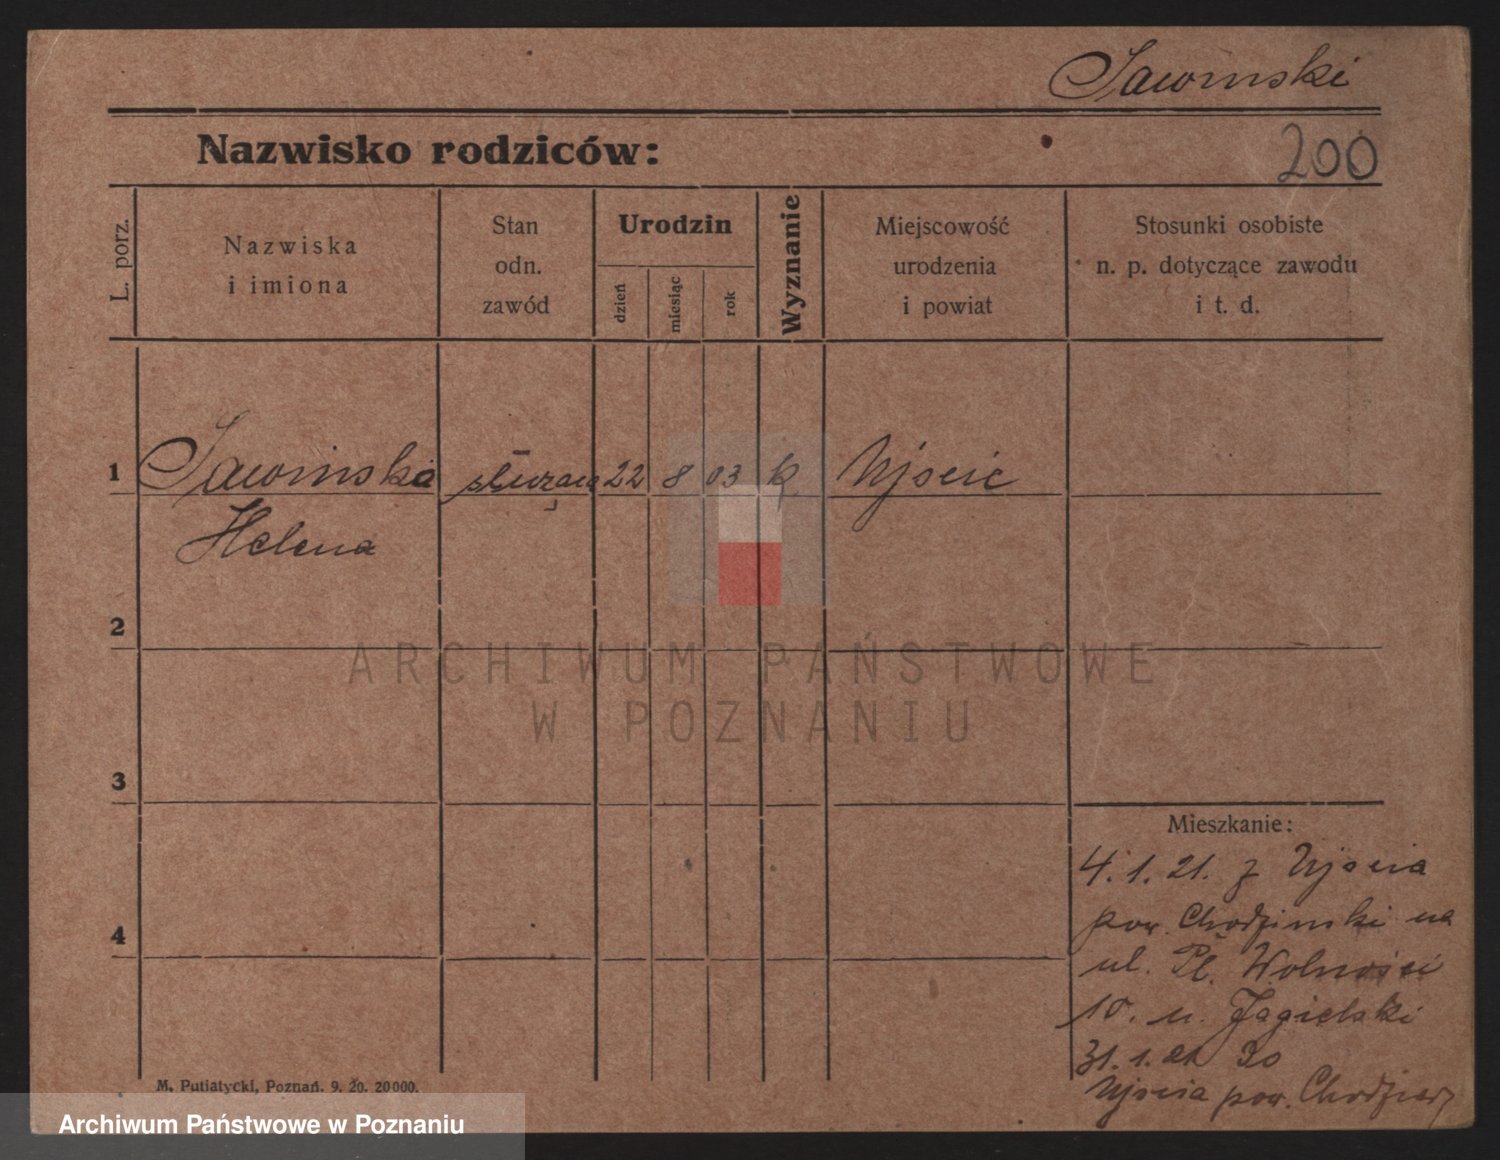 Sawinski
Nazwisko rodziców:
200
L. porz.
Nazwiska
i imiona
Stan
odn.
zawód
Urodzin
dzień
miesiąc
rok
Wyznanie
Miejscowość
urodzenia
i powiat
Stosunki osobiste
n. p. dotyczące zawodu
i t. d.
1 Sawinska służąca 22 8 03 k Ujscie
Helena
2
3
4
ARCHIWUM PAŃSTWOWE
W POZNANIU
Mieszkanie:
4. 1. 21. z Ujscia
pow. Chodzinski na
ul. Pl. Wolności
10. u. Jagielski
31. 1. 21 do
Ujscia pow. Chodzież
M. Putiatycki, Poznań. 9. 20. 20000.
Archiwum Państwowe w Poznaniu